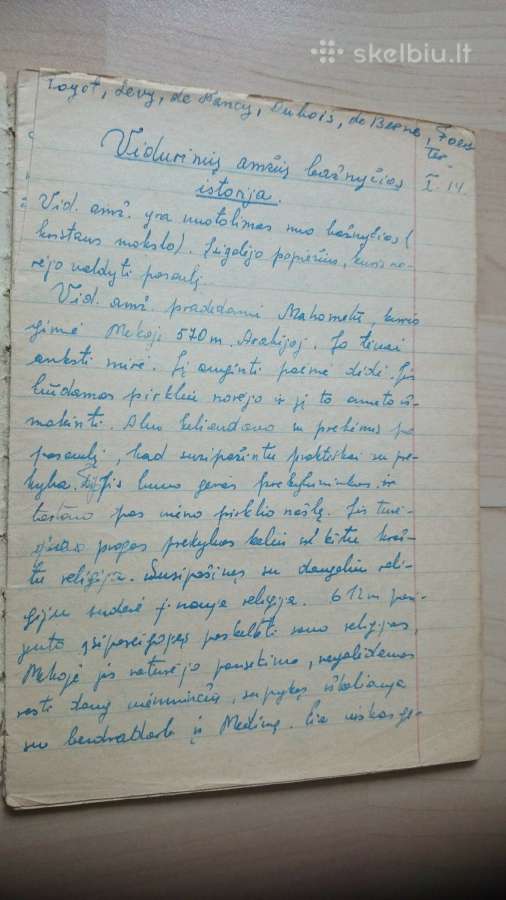 skelbiu.lt
Togot, Levy, de Nancy, Dubois, de Berne, Foers
ter-
I. 14.
Vidurinių amžių bažnyčios
istorija.
Vid. amž. yra nutolimas nuo bažnyčios (
kristaus mokslo). Įsigalėjo popiežius, kuris no-
rėjo valdyti pasaulį.
Vid. amž. pradedami Mahometu, kuris
gimė Mekoje 570 m. Arabijoj. Jo tėvai
anksti mirė. Jį auginti paėmė dėdė. Jis
būdamas pirkliu norėjo ir jį to amato iš-
mokinti. Abu keliaudavo su prekėmis po
pasaulį, kad susipažintų praktiškai su pre-
kyba. Jis buvo geras prekybininkas ir
tarnavo pas vieno pirklio našlę. Jis turė-
progos prekybos keliu už kitų kraš-
tų religija. Susipažinęs su daugeliu reli-
gijų sudarė naują religiją. 612 m. pasi-
juto įsipareigojęs paskelbti savo religiją.
Mekoje jis neturėjo pasisekimo, negalėdamas
rasti daug vienminčių, supykęs iškeliauja
su bendradarb. į Mediną. Čia viskas ge-